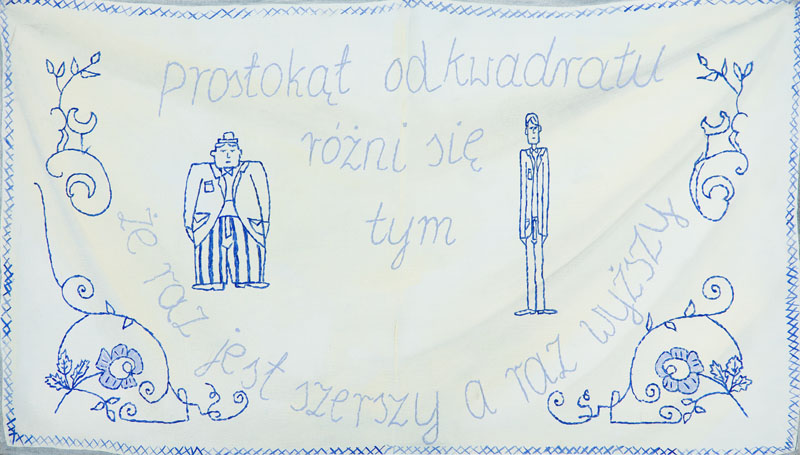 prostokąt od kwadratu
różni się
tym
że raz jest szerszy a raz wyższy